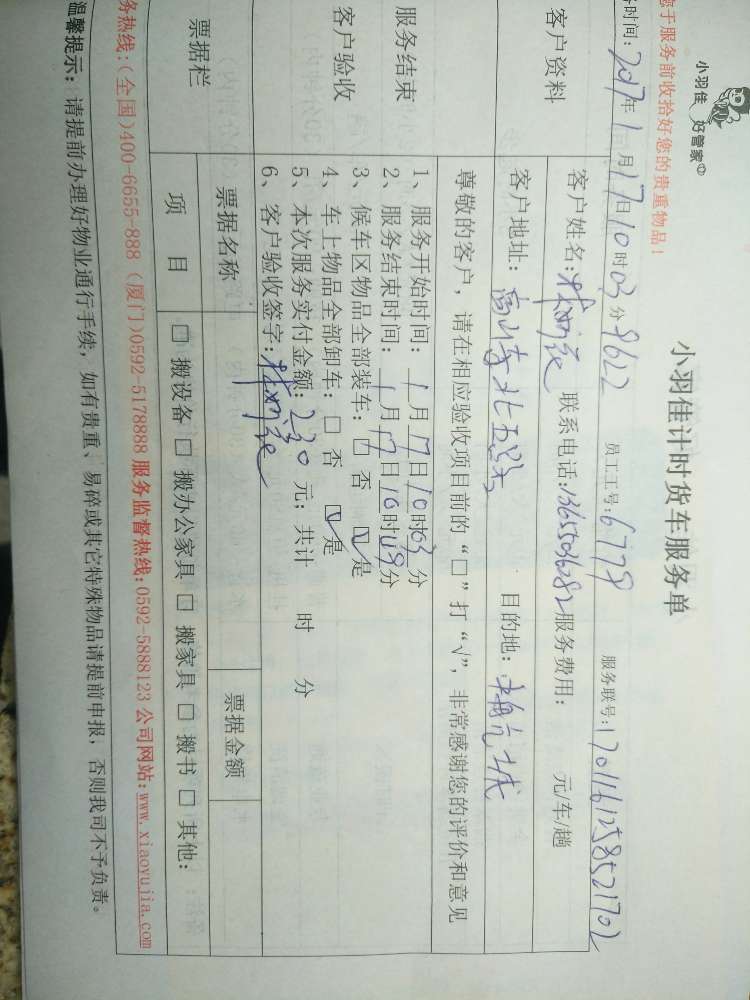 小羽佳 好管家
小羽佳计时货车服务单
您于服务前收拾好您的贵重物品!
务时间: 2017年1月17日10时03分 9622 员工工号: 6778 服务联号: 1701161258521702
客户资料
客户姓名: 联系电话: 13655036082 服务费用: 元/车/趟
客户地址: 目的地:
尊敬的客户, 请在相应验收项目前的“□”打“√”, 非常感谢您的评价和意见
服务结束
客户验收
1、服务开始时间: 1月17日10时03分
2、服务结束时间: 1月17日10时09分
3、候车区物品全部装车: □ 否 ☑ 是
4、车上物品全部卸车: □ 否 ☑ 是
5、本次服务实付金额: 230元; 共计 时 分
6、客户验收签字:
票据栏
票据名称 票据金额
项 目 □ 搬设备 □ 搬办公家具 □ 搬家具 □ 搬书 □ 其他:
务热线:(全国)400-6655-888 (厦门)0592-5178888 服务监督热线:0592-5888123 公司网站:www.xiaoyujia.com
温馨提示: 请提前办理好物业通行手续, 如有贵重、易碎或其它特殊物品请提前申报, 否则我司不予负责。